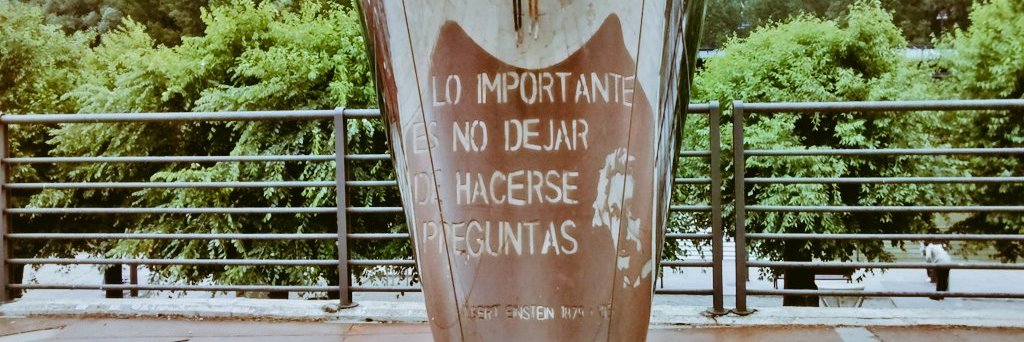 LO IMPORTANTE
ES NO DEJAR
DE HACERSE
PREGUNTAS
ALBERT EINSTEIN 1879